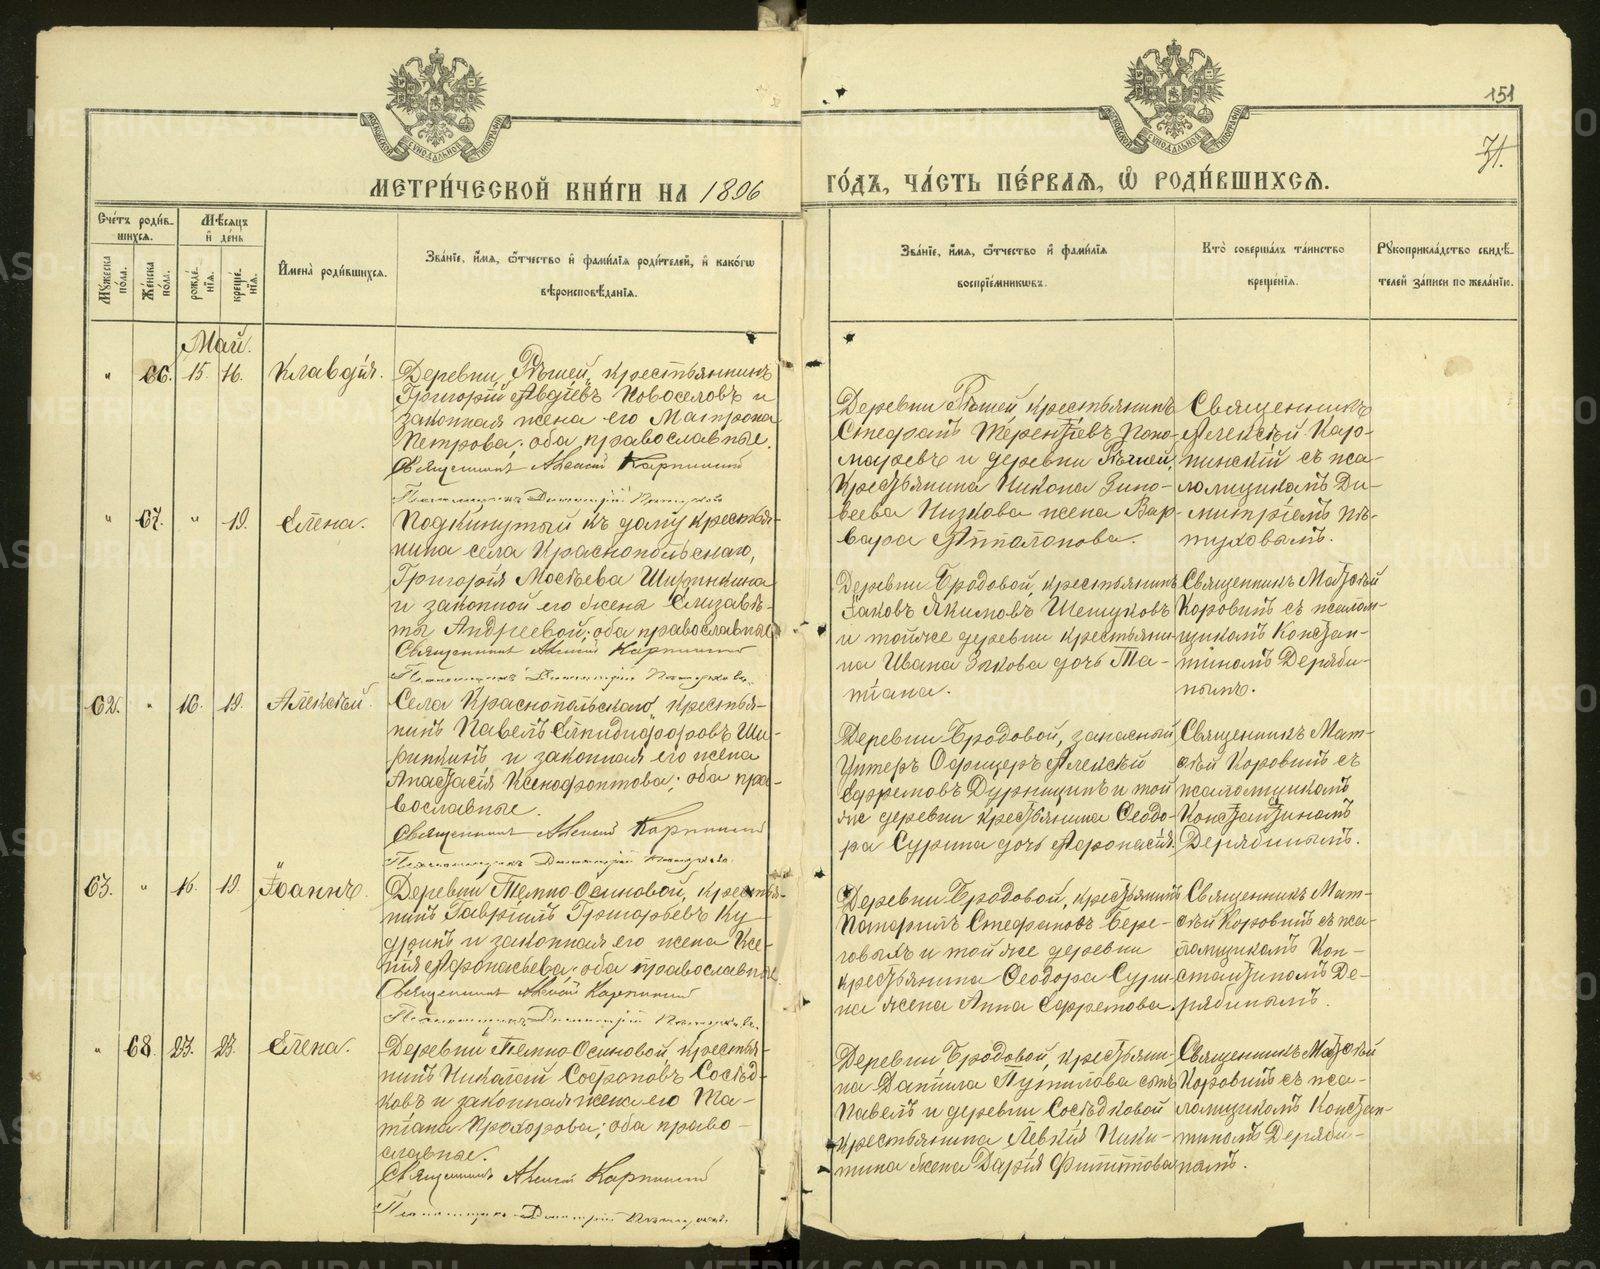 151
71.
МЕТРИ́ЧЕСКОЙ КНИ́ГИ НА 1896
ГО́ДЪ, ЧА́СТЬ ПЕ́РВАЯ, Ѽ РОДИ́ВШИХСЯ.
Сче́тъ роди́в-
шихся.
Му́жеска по́ла.
Же́нска по́ла.
Мѣ́сяцъ
и҆ де́нь
рожде́нїя.
креще́нїя.
И҆мена̀ роди́вшихся.
Зва́нїе, и҆́мя, ѻ҆́тчество и҆ фами́лїя роди́телей, и҆ како́гѡ
вѣроисповѣ́данїя.
Зва́нїе, и҆́мя, ѻ҆́тчество и҆ фами́лїя
воспрїе́мникѡвъ.
Кто̀ соверша́лъ та́инство
креще́нїя.
Рꙋкоприкла́дство свидѣ́-
телей за́писи по жела́нїю.
Май.
" 66. 15. 16. Клавдія.
Деревни Рѣшей, крестьянинъ
Григорій Авдіевъ Новоселовъ и
законная жена его Матрона
Петрова; оба православные.
Священникъ Алексій Карпинскій
Псаломщикъ Димитрій Пѣтуховъ
Деревни Рѣшей, крестьянинъ
Стефанъ Терентіевъ Поно-
маревъ и деревни Рѣшей,
крестьянина Никона Зино-
веева Низкова жена Вар-
вара
Священникъ
Алексѣй Кар-
пинскій съ пса-
ломщикомъ Ди-
митріемъ Пѣ-
туховымъ.
" 67. " 19. Елена.
Подкинутый къ дому крестья-
нина села Краснопольскаго,
Григорія Мосѣева Ширинкина
и законной его жены Елизаве-
ты Андреевой; оба православные
Священникъ Алексій Карпинскій
Псаломщикъ Димитрій Пѣтуховъ
Деревни Бродовой, крестьянинъ
Іаковъ Якимовъ Шешуковъ
и тойже деревни крестьяни-
на Ивана Зыкова дочь Та-
тіана.
Священникъ Матѳей
Коровинъ съ псалом-
щикомъ Констан-
тиномъ Деряби-
нымъ.
62. " 16. 19. Алексѣй.
Села Краснопольскаго крестья-
нинъ Павелъ Елпидифоровъ Ши-
ринкинъ и законная его жена
Анастасія Ксенофонтова; оба пра-
вославные.
Священникъ Алексій Карпинскій
Псаломщикъ Димитрій Пѣтуховъ
Деревни Бродовой, запасный
Унтеръ Офицеръ Алексій
Ефремовъ Дурницынъ и той
же деревни крестьянина Ѳеодо-
ра Сурина дочь Афанасія.
Священникъ Мат-
ѳей Коровинъ съ
псаломщикомъ
Константиномъ
Дерябинымъ.
63. " 16. 19. Іоаннъ.
Деревни Темно-Осиновой, крестья-
нинъ Гавріилъ Григорьевъ Ку-
дринъ и законная его жена Ксе-
нія Афонасьева; оба православные
Священникъ Алексій Карпинскій
Псаломщикъ Димитрій Пѣтуховъ
Деревни Бродовой, крестьянинъ
Потапій Стефановъ Бере-
говыхъ и той же деревни
крестьянина Ѳеодора Сури-
на жена Анна Ефремова.
Священникъ Мат-
ѳей Коровинъ съ пса-
ломщикомъ Кон-
стантиномъ Де-
рябинымъ.
" 68. 23. 23. Елена.
Деревни Темно-Осиновой, крестья-
нинъ Николай Софроновъ Сосѣд-
ковъ и законная жена его Та-
тіана Прохорова; оба право-
славные.
Священникъ Алексій Карпинскій
Псаломщикъ Димитрій Пѣтуховъ
Деревни Бродовой, крестьяни-
на Даніила Путилова сынъ
Павелъ и деревни Сосѣдковой
крестьянина Левкія Ники-
тина жена Дарія Филиппова
Священникъ Матѳей
Коровинъ съ пса-
ломщикомъ Констан-
тиномъ Деряби-
нымъ.